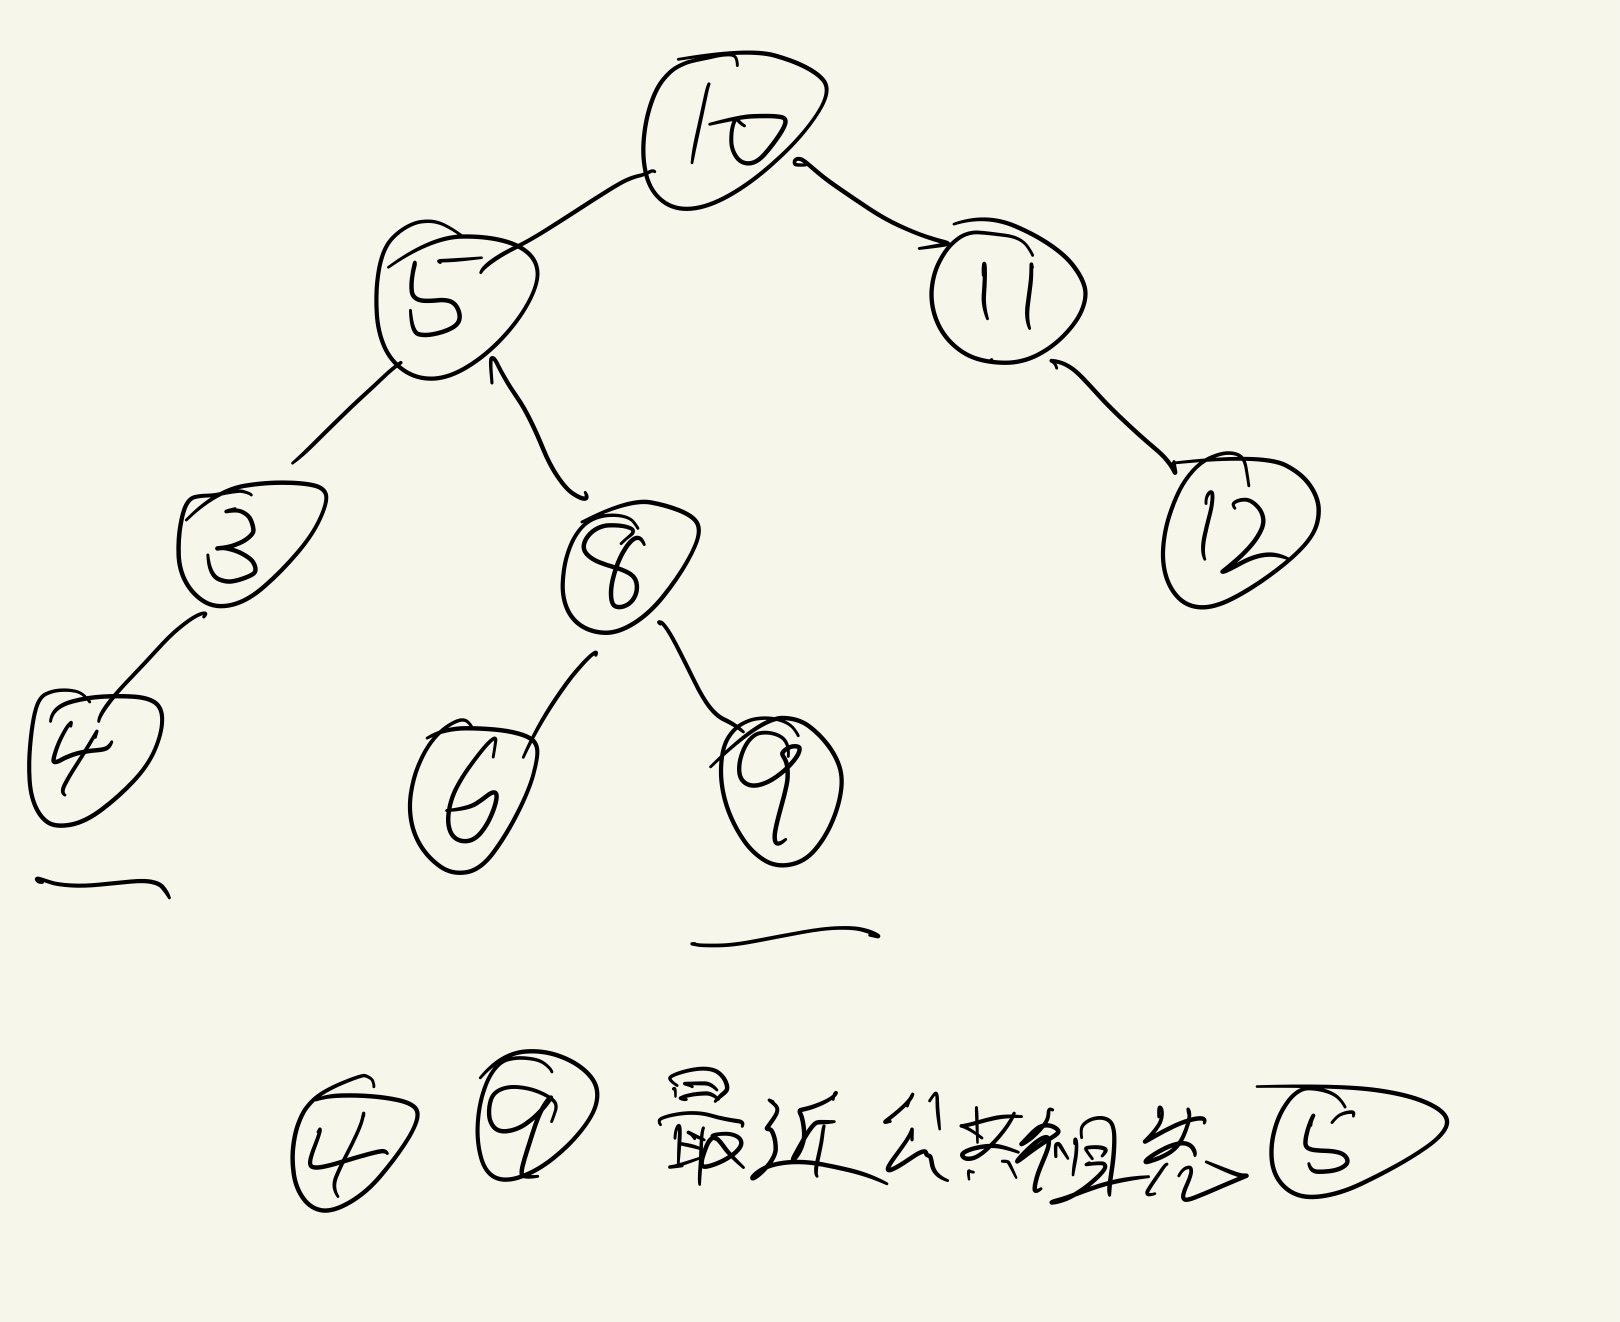 10
5 11
3 8 12
4 6 9
4 9 最近公共祖先 5